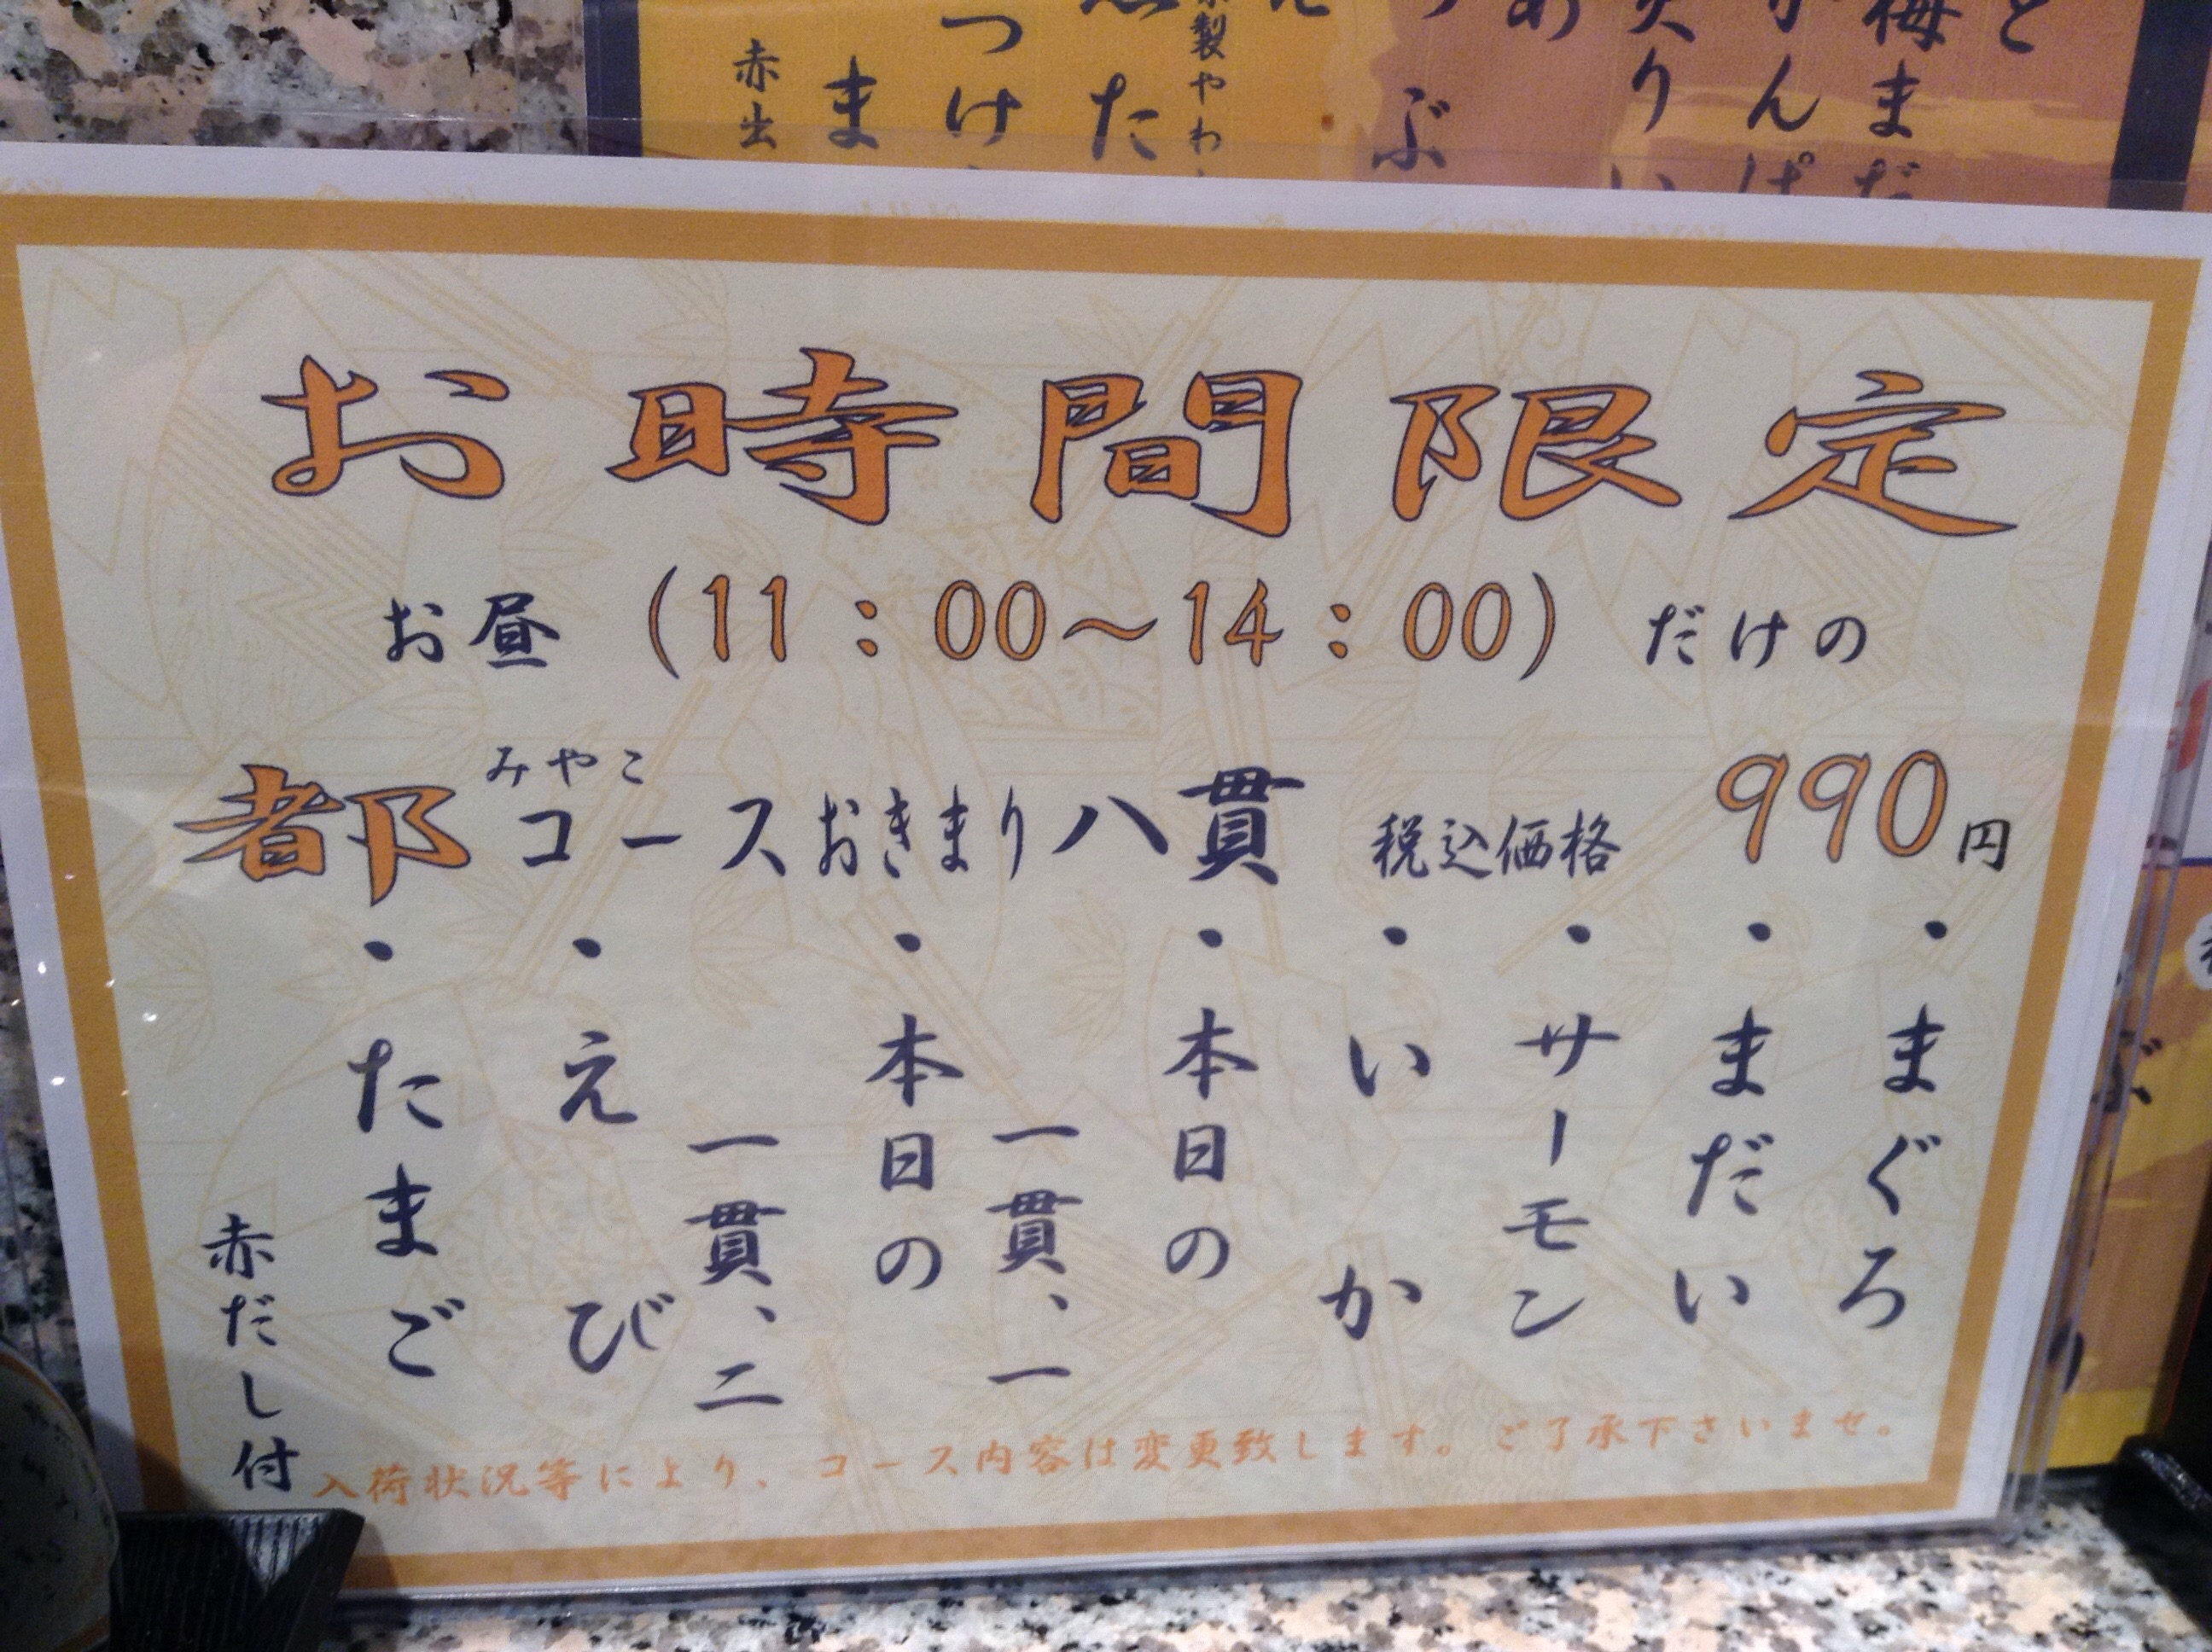 お時間限定
お昼（11：00～14：00）だけの
みやこ
都コースおきまり八貫 税込価格 990円
・まぐろ
・まだい
・サーモン
・いか
・本日の
一貫、一
・本日の
一貫、二
・えび
・たまご
赤だし付
入荷状況等により、コース内容は変更致します。ご了承下さいませ。
と
梅まだ
かんぱ
炙りい
あ
つぶ
製やわ
た
つけ
ま
赤出